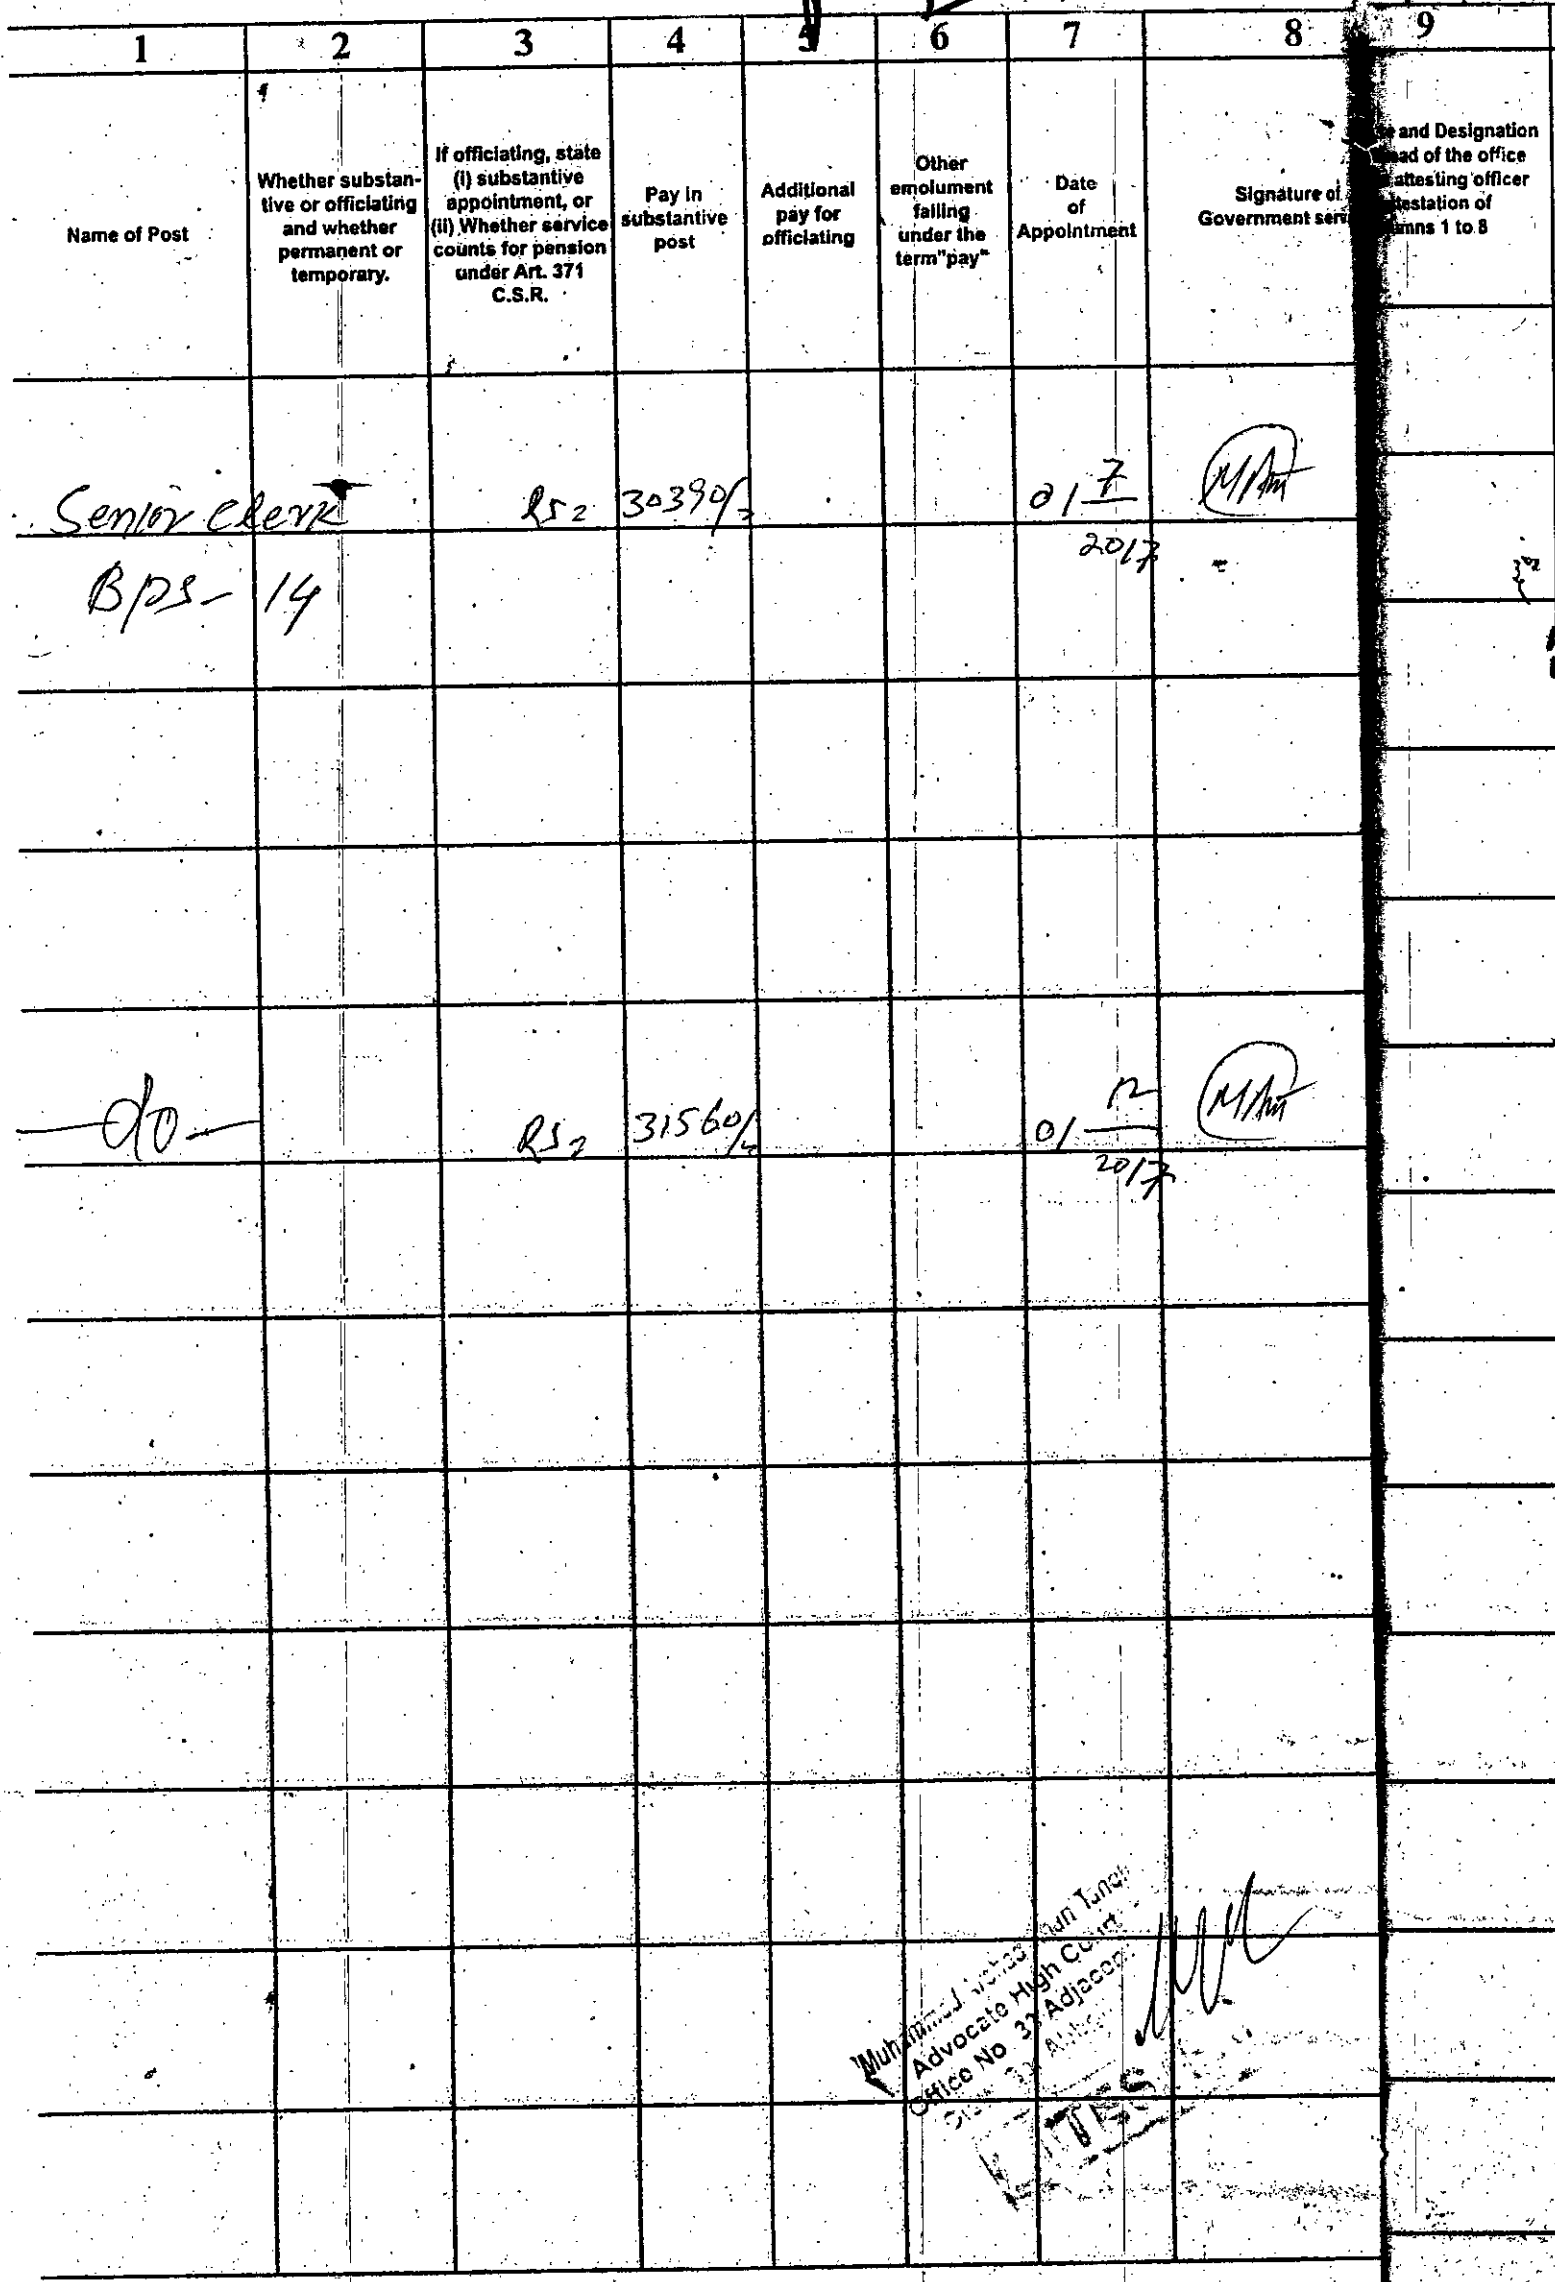 1 2 3 4 5 6 7 8 9
Name of Post
Whether substan-
tive or officiating
and whether
permanent or
temporary.
If officiating, state
(i) substantive
appointment, or
(ii) Whether service
counts for pension
under Art. 371
C.S.R.
Pay in
substantive
post
Additional
pay for
officiating
Other
emolument
falling
under the
term "pay"
Date
of
Appointment
Signature of
Government
and Designation
of the office
attesting officer
of
1 to 8
Senior Clerk Rs 30390/- 01 7
2017
Bps- 14
do Rs 31560/- 01 12
2017
Muhammad
Advocate High Court
Office No 33 Adjacent